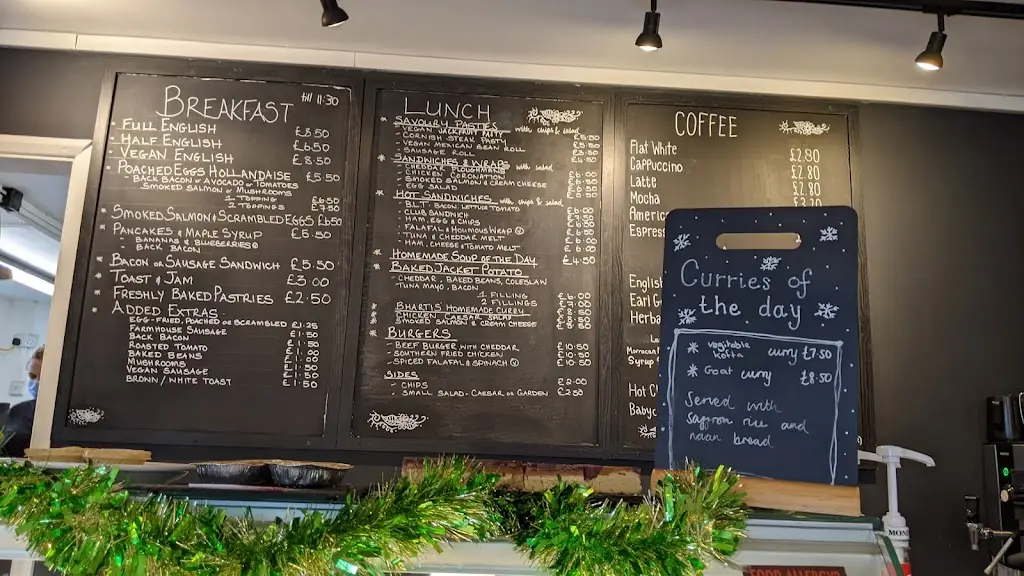 BREAKFAST till 11:30
FULL ENGLISH £8.50
HALF ENGLISH £6.50
VEGAN ENGLISH £8.50
POACHED EGGS HOLLANDAISE £5.50
- BACK BACON OR AVOCADO OR TOMATOES
SMOKED SALMON OR MUSHROOMS
1 TOPPING £6.50
2 TOPPINGS
SMOKED SALMON & SCRAMBLED EGGS £6.50
PANCAKES & MAPLE SYRUP £5.50
- BANANAS & BLUEBERRIES
- BACK BACON
BACON OR SAUSAGE SANDWICH £5.50
TOAST & JAM £3.00
FRESHLY BAKED PASTRIES £2.50
ADDED EXTRAS
EGG - FRIED, POACHED OR SCRAMBLED £1.25
FARMHOUSE SAUSAGE £1.50
BACK BACON £1.50
ROASTED TOMATO £1.00
BAKED BEANS £1.00
MUSHROOMS
VEGAN SAUSAGE £1.50
BROWN / WHITE TOAST £1.50
LUNCH
SAVOURY PASTIES with chips & salad
- VEGAN JACKFRUIT PATTY
- CORNISH STEAK PASTY
- VEGAN MEXICAN BEAN ROLL
- SAUSAGE ROLL
SANDWICHES & WRAPS with salad
- CHEDDAR PLOUGHMANS
- CHICKEN CORONATION
- SMOKED SALMON & CREAM CHEESE
- EGG SALAD
HOT SANDWICHES with chips & salad
- BLT - BACON LETTUCE TOMATO
- CLUB SANDWICH
- HAM, EGG & CHIPS
- FALAFAL & HOUMOUS WRAP V
- TUNA & CHEDDAR MELT
- HAM, CHEESE & TOMATO MELT
HOMEMADE SOUP OF THE DAY £4.50
BAKED JACKET POTATO
- CHEDDAR, BAKED BEANS, COLESLAW
TUNA MAYO, BACON
1 FILLING
2 FILLINGS
BHARTIS' HOMEMADE CURRY
CHICKEN CAESAR SALAD
SMOKED SALMON & CREAM CHEESE
BURGERS
- BEEF BURGER WITH CHEDDAR £10.50
- SOUTHERN FRIED CHICKEN £10.50
- SPICED FALAFAL & SPINACH V £10.50
SIDES
- CHIPS £2.00
- SMALL SALAD - CAESAR OR GARDEN £2.50
COFFEE
Flat White £2.80
Cappuccino £2.80
Latte £2.80
Mocha £3.20
Americ
Espres
English
Earl G
Herba
Syrup
Hot C
Babyc
Curries of
the day
vegitable
kofta curry £7.50
Goat curry £8.50
Served with
saffron rice and
naan bread
MON
FOOD ALLERGY?